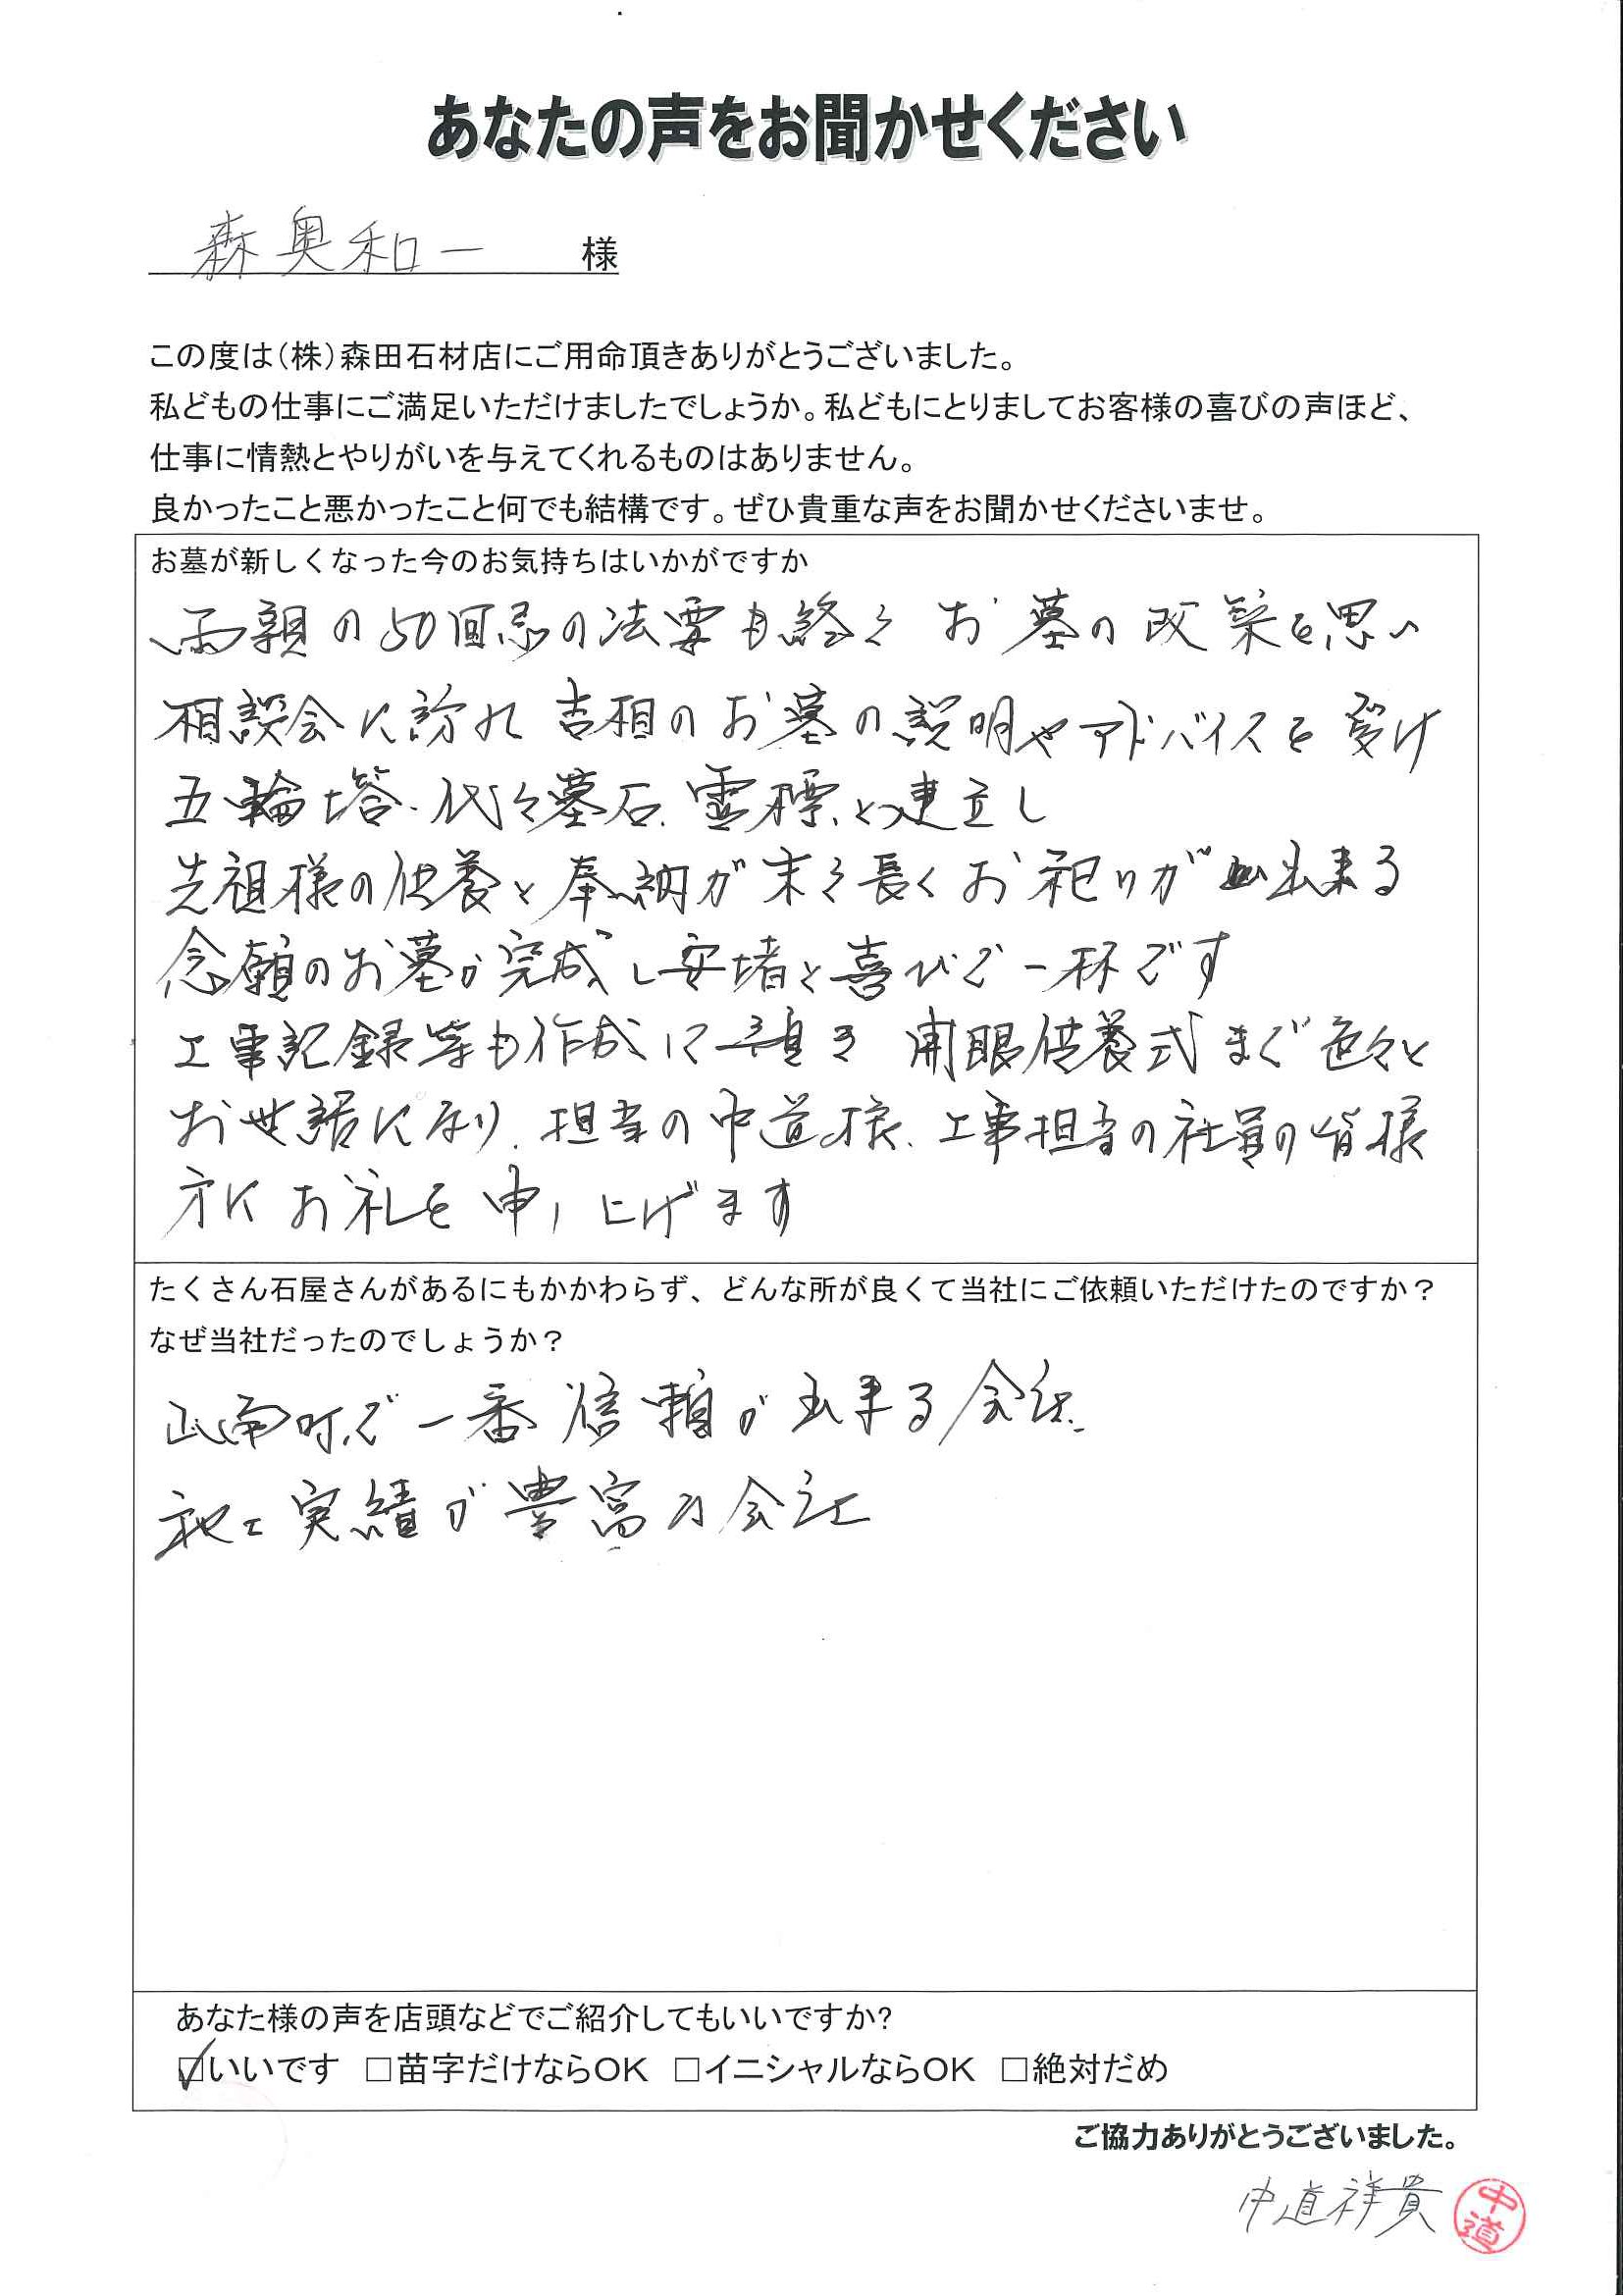 あなたの声をお聞かせください
森奥和一 様
この度は（株）森田石材店にご用命頂きありがとうございました。
私どもの仕事にご満足いただけましたでしょうか。私どもにとりましてお客様の喜びの声ほど、
仕事に情熱とやりがいを与えてくれるものはありません。
良かったこと悪かったこと何でも結構です。ぜひ貴重な声をお聞かせくださいませ。
お墓が新しくなった今のお気持ちはいかがですか
両親の50回忌の法要も終え お墓の改築を思い
相談会に訪れ 吉相のお墓の説明やアドバイスを受け
五輪塔、代々墓石、霊標、と建立し
先祖様の供養と奉納が末々長くお祀りが出来る
念願のお墓が完成し安堵と喜びで一杯です
工事記録等も作成して頂き 開眼供養式まで色々と
お世話になり、担当の中道様、工事担当の社員の皆様
方にお礼を申し上げます
たくさん石屋さんがあるにもかかわらず、どんな所が良くて当社にご依頼いただけたのですか？
なぜ当社だったのでしょうか？
山南町で一番信頼が出来る会社、
施工実績が豊富な会社
あなた様の声を店頭などでご紹介してもいいですか?
☑いいです □苗字だけならOK □イニシャルならOK □絶対だめ
ご協力ありがとうございました。
中道祥貴 中道